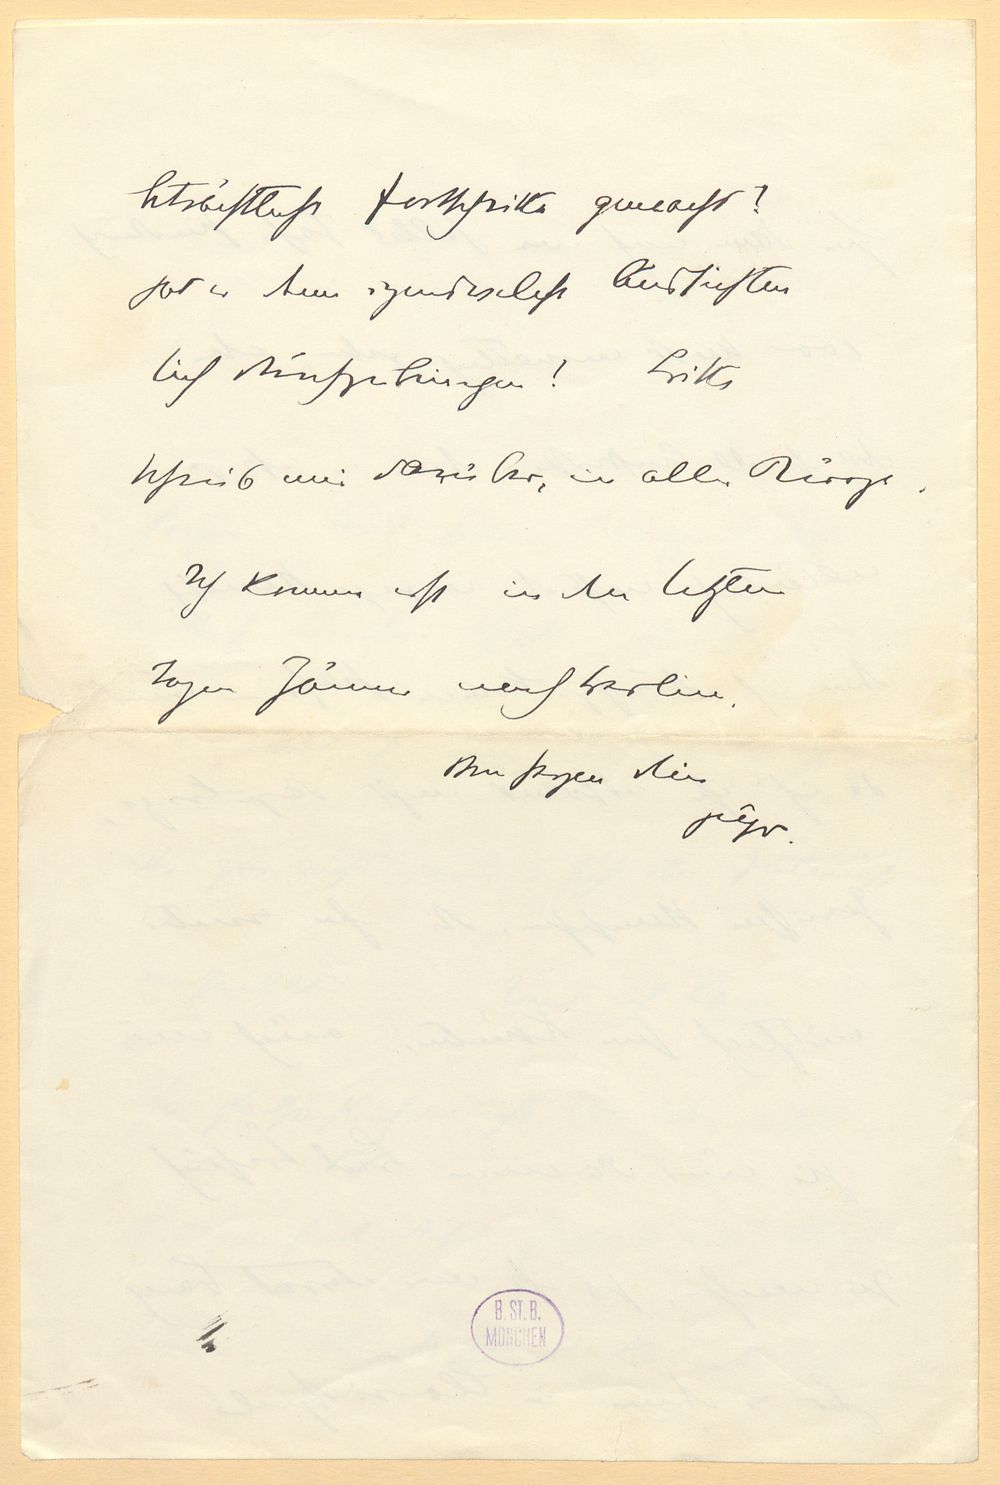 beträchtliche Fortschritte gemacht?
hat er denn irgendwelche Aussichten
sich durchzubringen? Bitte
schreib mir darüber, in aller Kürze.
Ich komme erst in den letzten
Tagen Jänner nach Berlin.
Von Herzen dein
Hugo.
B. ST. B.
MÜNCHEN